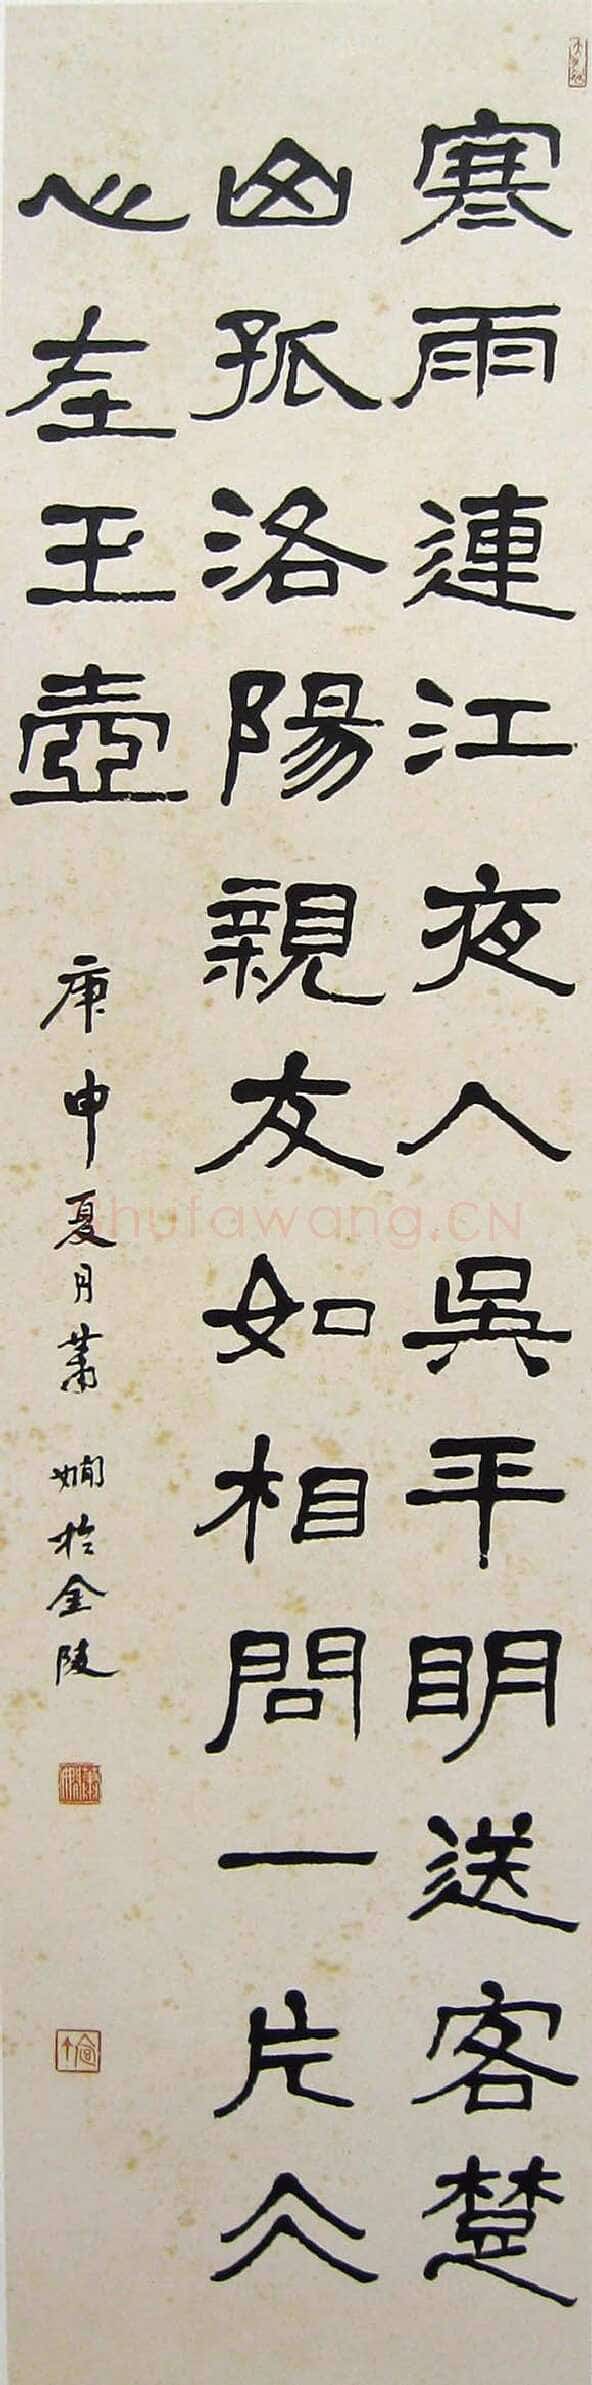 寒雨連江夜入吳平明送客楚
山孤洛陽親友如相問一片仌
心在玉壺
庚申夏月蕭嫻於金陵
shufawang.CN